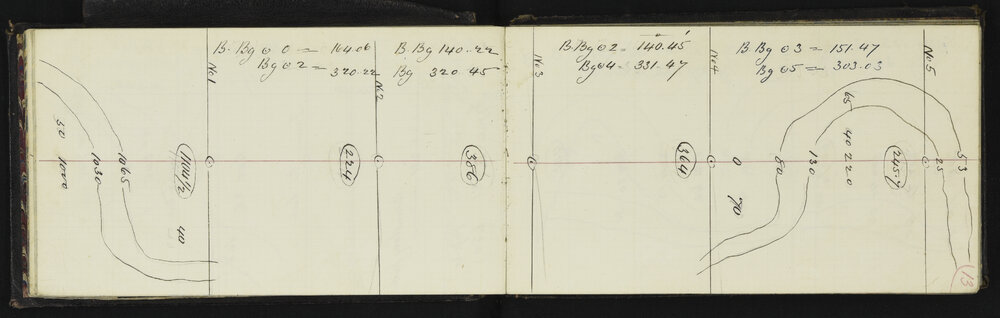 B. Bg ⊙ 0 = 164.06
Bg ⊙ 2 = 320.22
B. Bg 140.22
Bg 320.45
B. Bg ⊙ 2 = 140.45
Bg ⊙ 4 = 331.47
B. Bg ⊙ 3 = 151.47
Bg ⊙ 5 = 303.03
No 1
No 2
No 3
No 4
No 5
50
1030
1065
1104 1/2
40
224
386
364
0
70
80
130
65
40 220
245.7
25
53
13